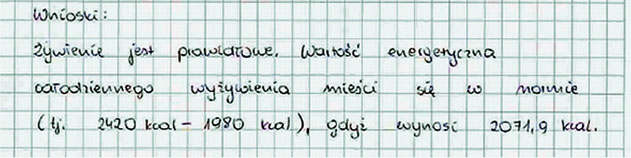 Wnioski:
Żywienie jest prawidłowe. Wartość energetyczna
całodziennego wyżywienia mieści się w normie
(tj. 2420 kcal - 1980 kcal), gdyż wynosi 2071,9 kcal.